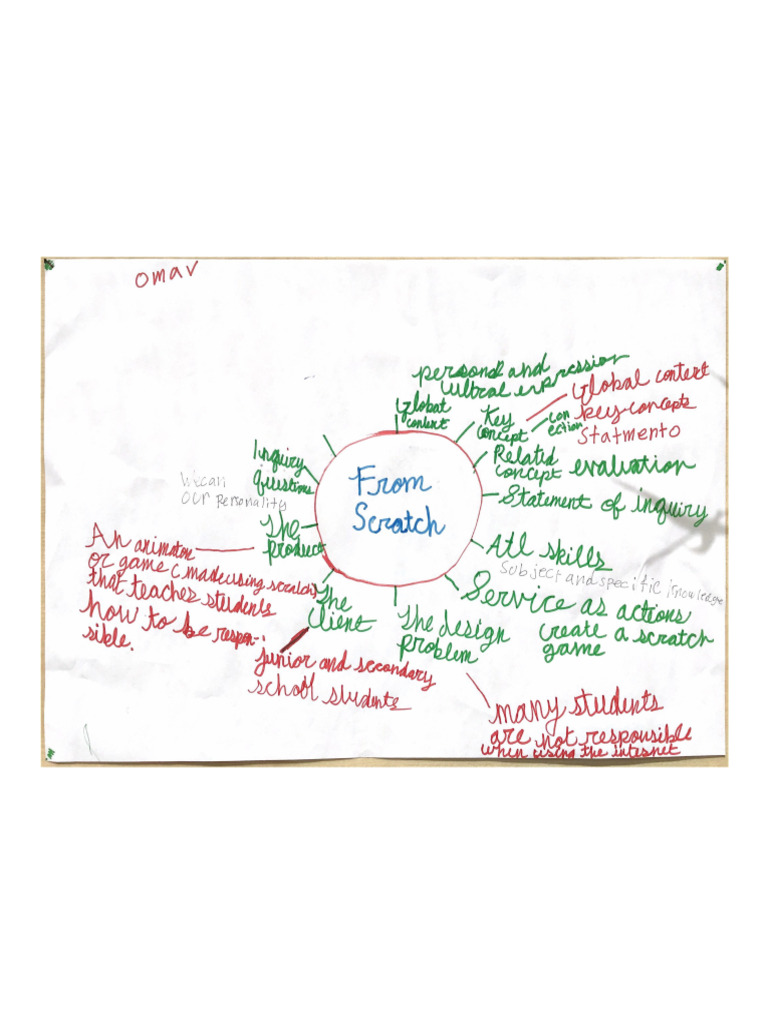 omar
personal and
cultral expression
Global
context
Key
concept
con
ection
Global context
key concepts
Statmento
Related
concept evaluation
Statement of inquiry
Atl skills
Subject and specific knowledge
Service as actions
create a scratch
game
The design
problem
many students
are not responsible
when using the internet
The
client
junior and secondary
school students
The
product
An animaton
or game (made using scratch)
that teaches students
how to be respon-
sible.
Inquiry
questions
we can
our personality
From
Scratch